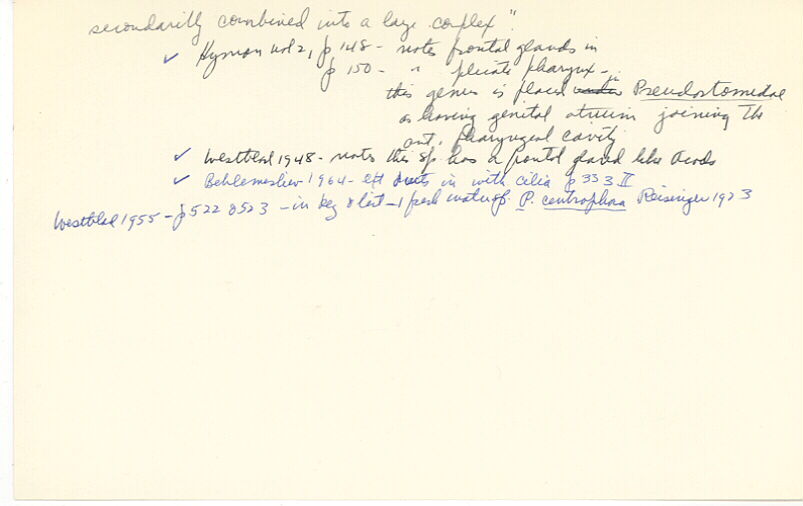 secondarily combined into a large complex"
✓ Hyman vol 2, p 148 - notes frontal glands in
p 150 - " plicate pharynx - in
this genus is placed under Pseudostomidae
as having genital atrium joining the
ant. pharyngeal cavity
✓ Westblad 1948 - notes this sp has a frontal gland like Acoels
✓ Beklemishev 1964 - ducts in with cilia p 333 II
Westblad 1955 - p 522 & 523 - in key & list - 1 fresh water sp. P. centrophora Reisinger 1923